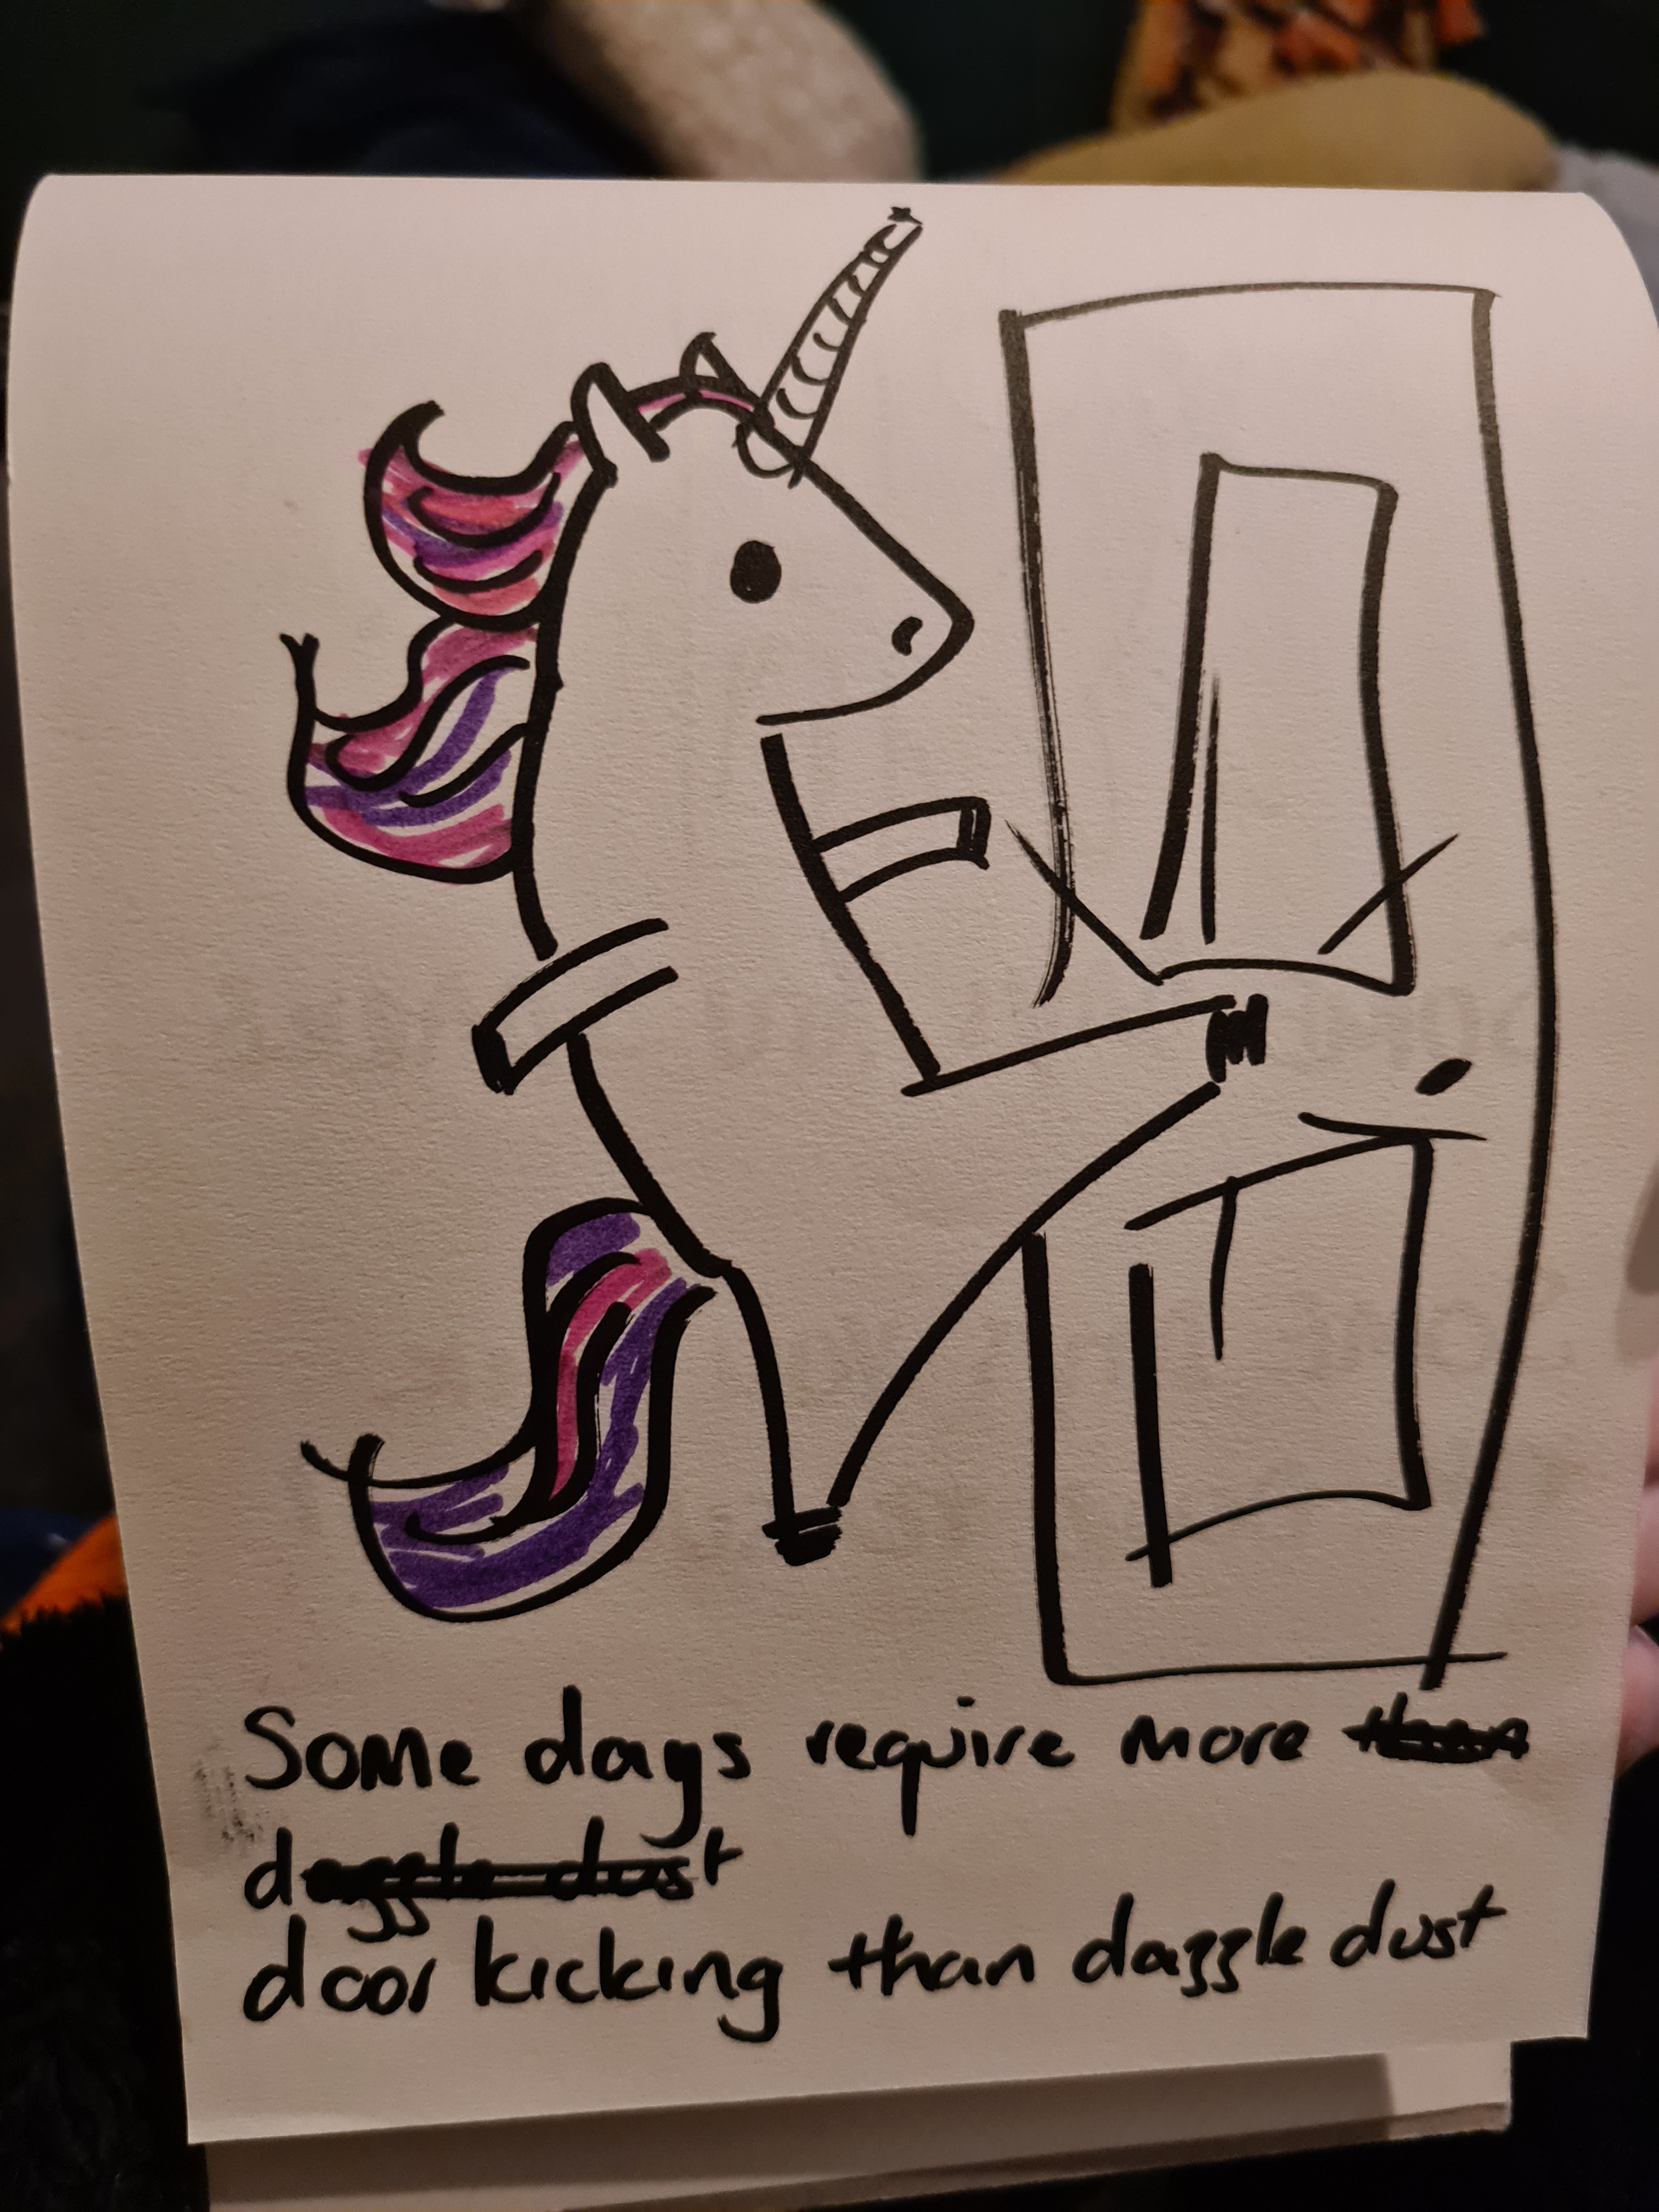 Some days require more than
daggle dust
door kicking than dazzle dust